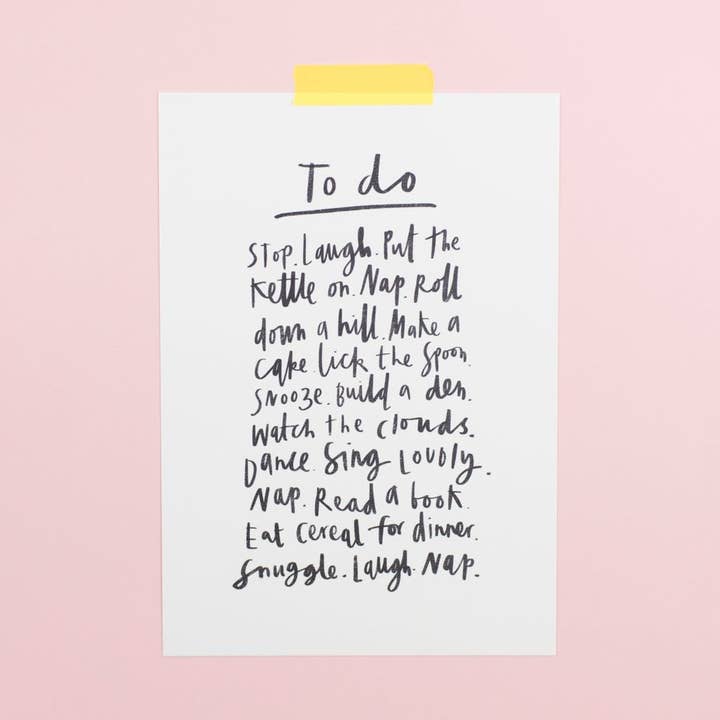 To do
Stop. Laugh. Put the
Kettle on. Nap. Roll
down a hill. Make a
cake. lick the spoon.
Snooze. Build a den.
Watch the clouds.
Dance. Sing Loudly.
Nap. Read a book.
Eat cereal for dinner.
Snuggle. Laugh. Nap.